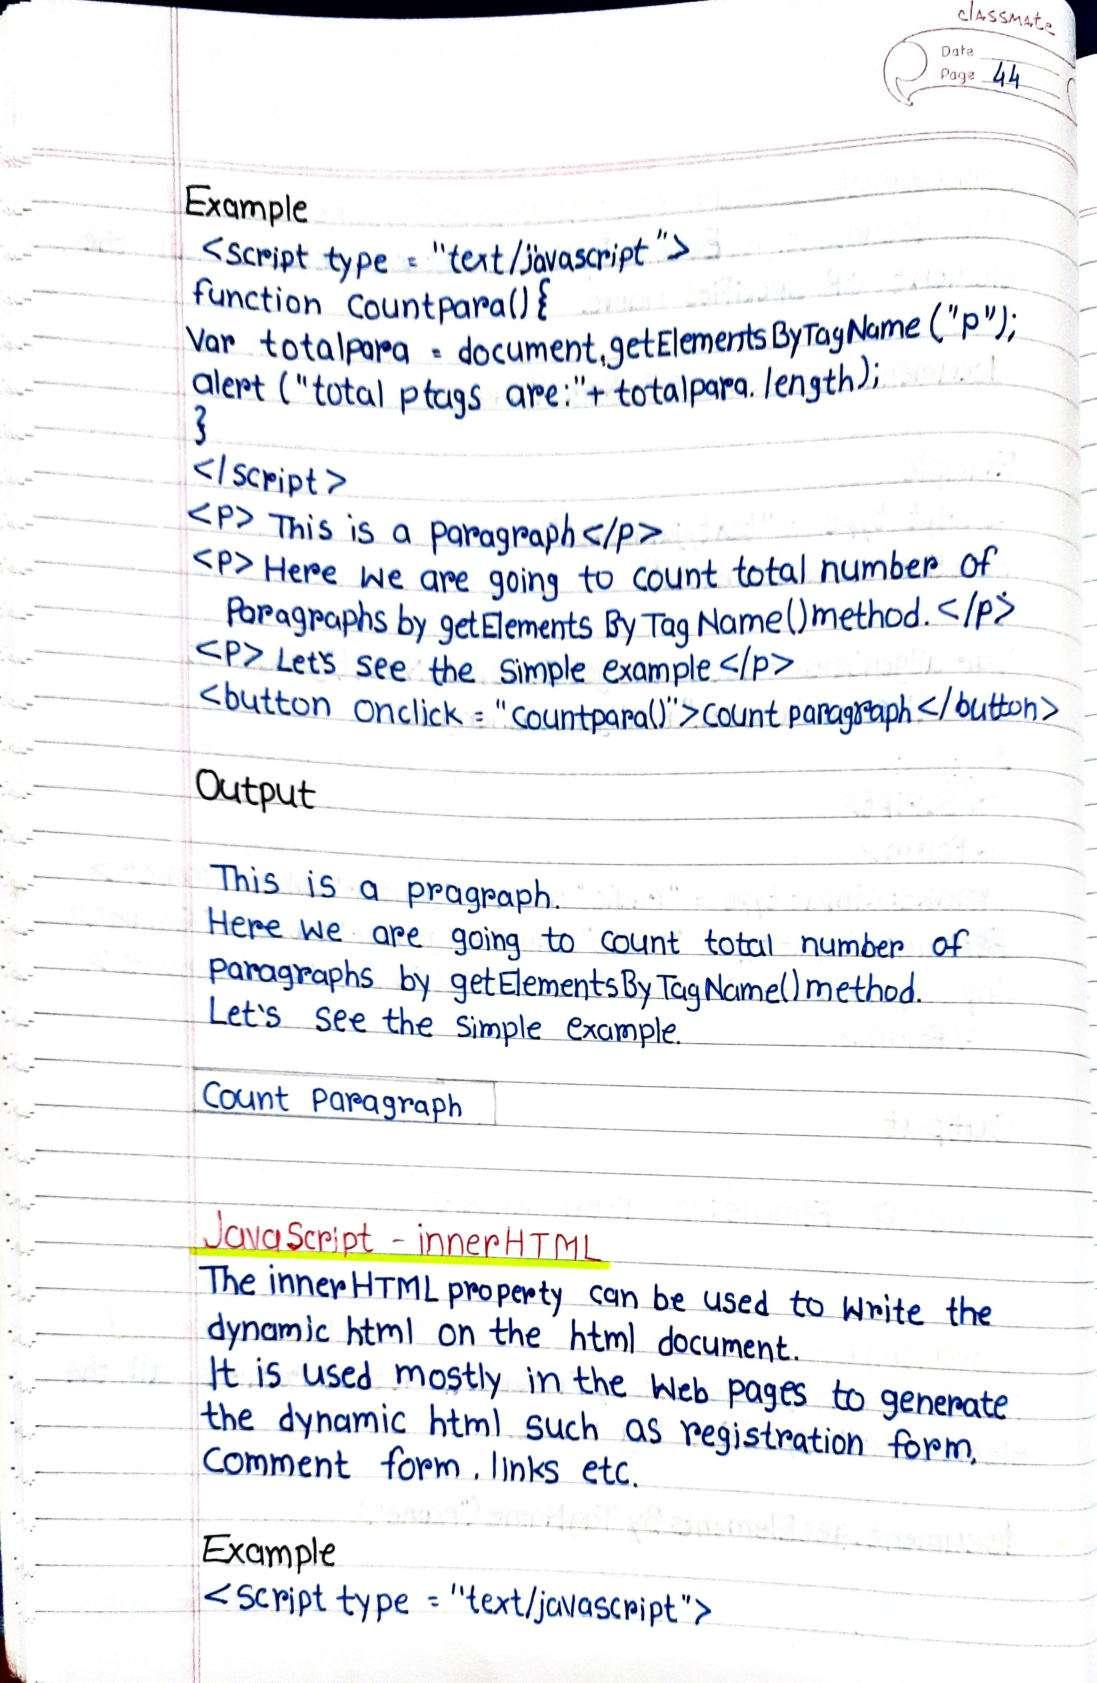 classmate
Date
Page 44
Example
<script type = "text/javascript">
function countpara(){
Var totalpara = document.getElementsByTagName("p");
alert ("total p tags are:"+ totalpara.length);
}
</script>
<P> This is a paragraph</p>
<P> Here we are going to count total number of
Paragraphs by getElements By Tag Name() method.</p>
<P> Let's see the simple example </p>
<button onclick = "countpara()">count paragraph</button>
Output
This is a pragraph.
Here we are going to count total number of
paragraphs by getElementsByTagName() method.
Let's see the simple example.
Count Paragraph
JavaScript - innerHTML
The innerHTML property can be used to write the
dynamic html on the html document.
It is used mostly in the web pages to generate
the dynamic html such as registration form,
comment form, links etc.
Example
<script type = "text/javascript">